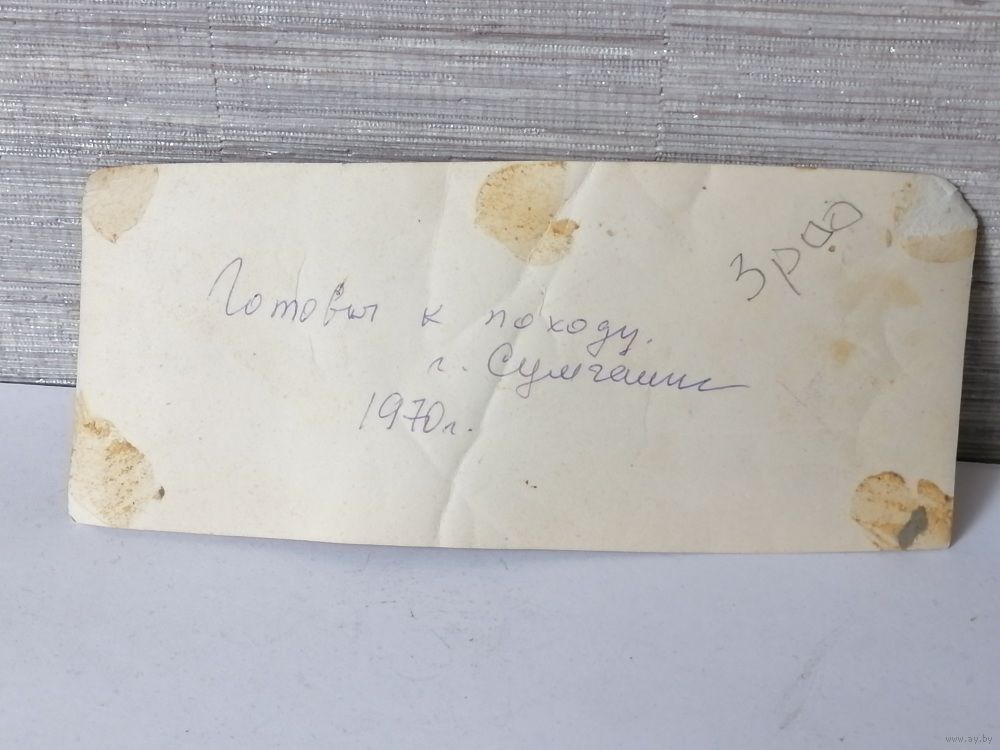 Готовы к походу.
г. Сумгаит
1970г.
www.ay.by